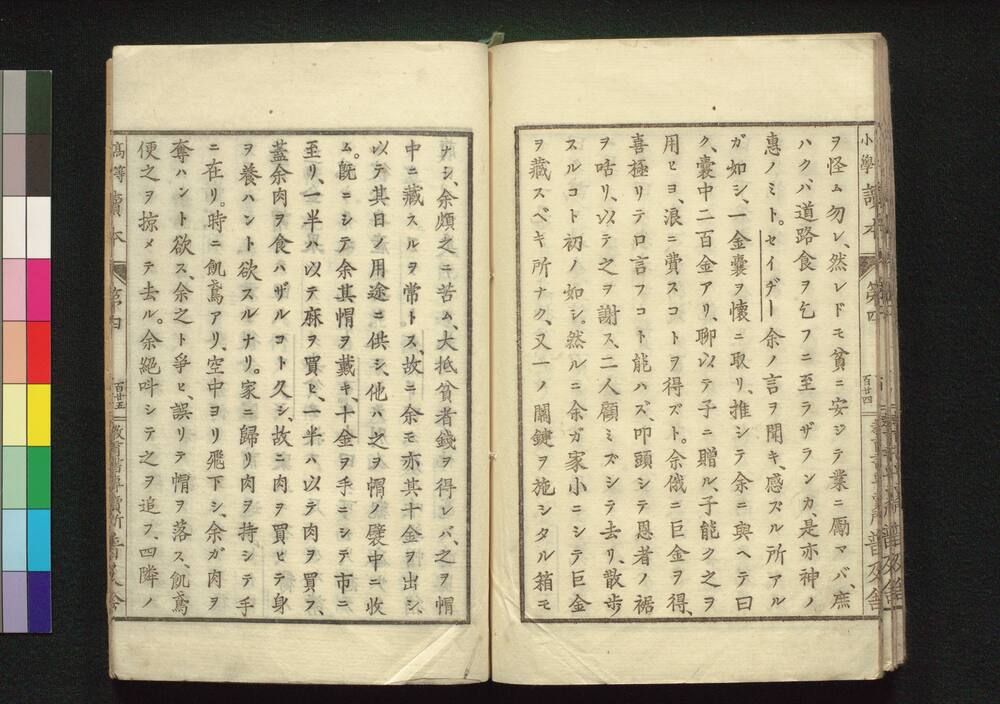 小學讀本
第四
百廿四
普及舍
ヲ怪ム勿レ、然レドモ貧ニ安ジテ業ニ勵マバ、庶
ハクハ道路食ヲ乞フニ至ラザランカ、是亦神ノ
惠ノミト。セイヂー余ノ言ヲ聞キ、感ズル所アル
ガ如シ、一金囊ヲ懷ニ取リ、推シテ余ニ與ヘテ曰
ク、囊中二百金アリ、聊以テ子ニ贈ル、子能ク之ヲ
用ヒヨ、浪ニ費スコトヲ得ズト。余俄ニ巨金ヲ得、
喜極リテ口言フコト能ハズ、叩頭シテ恩者ノ裾
ヲ咕リ、以テ之ヲ謝ス、二人顧ミズシテ去リ、散歩
スルコト初ノ如シ。然ルニ余ガ家小ニシテ巨金
ヲ藏スベキ所ナク、又一ノ關鍵ヲ施シタル箱モ
ナシ、余頗之ニ苦ム、大抵貧者錢ヲ得レバ、之ヲ帽
中ニ藏スルヲ常トス、故ニ余モ亦其十金ヲ出シ、
以テ其日ノ用途ニ供シ、他ハ之ヲ帽ノ襞中ニ收
ム。旣ニシテ余其帽ヲ戴キ、十金ヲ手ニシテ市ニ
至リ、一半ハ以テ麻ヲ買ヒ、一半ハ以テ肉ヲ買フ、
蓋余肉ヲ食ハザルコト久シ、故ニ肉ヲ買ヒテ身
ヲ養ハント欲スルナリ。家ニ歸リ肉ヲ持シテ手
ニ在リ。時ニ飢鳶アリ、空中ヨリ飛下シ、余ガ肉ヲ
奪ハント欲ス、余之ト爭ヒ、誤リテ帽ヲ落ス、飢鳶
便之ヲ掠メテ去ル。余絕呌シテ之ヲ追フ、四隣ノ
高等讀本
第四
百廿五